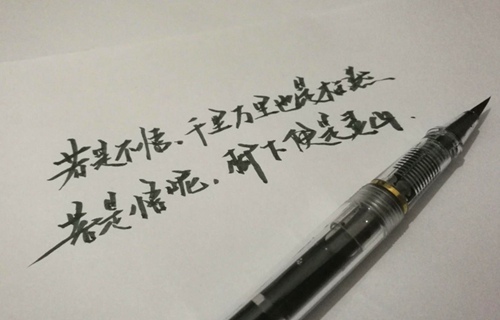 若是不悟、千里万里也是枉然、
若是悟呢、脚下便是灵山.